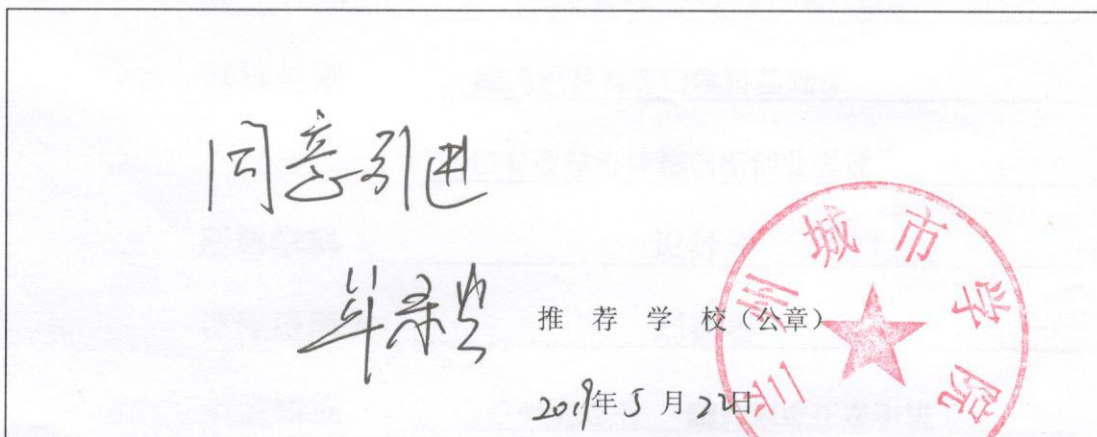 同意引进
推荐学校（公章）
2019年5月22日
兰州城市学院